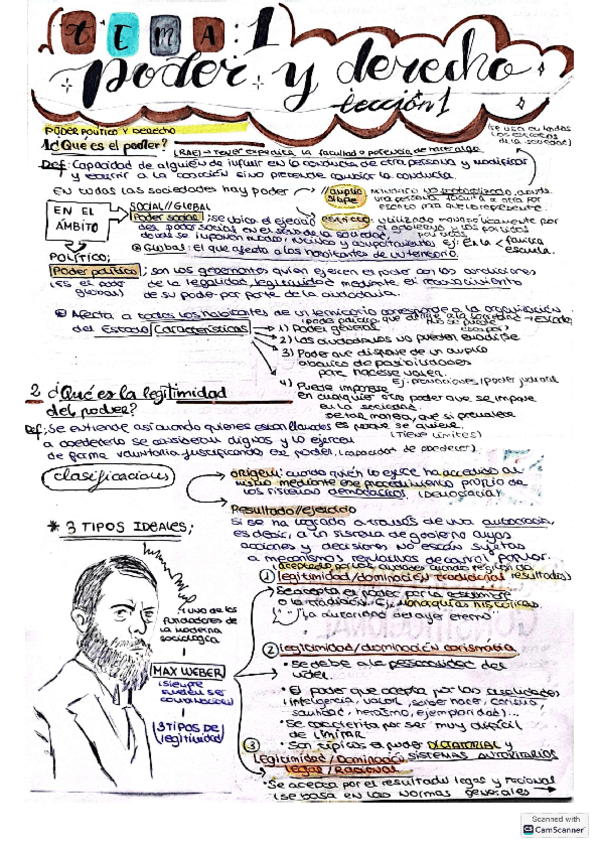 TEMA:1
poder y derecho
Lección 1
PODER POLÍTICO Y DERECHO
(se usa en todas
los
de la sociedad)
1. ¿Qué es el poder?
(RAE) → Tener expedita la facultad o potencia de hacer algo.
Def: Capacidad de alguien de influir en la conducta de otra persona y modificar
y recurrir a la coacción sino pretende cambiar la conducta.
EN todas las sociedades hay poder
//amplio
una persona
SOCIAL//GLOBAL
EN EL ÁMBITO
Poder social; se ubica el ejercicio
del poder social en el seno de la sociedad,
donde se imponen y comportamientos Ej: En la familia
escuela.
Global: el que afecta a los habitantes de un territorio.
POLÍTICO;
Poder político; son los gobernantes quien ejercen el poder con las condiciones
(Es el poder global)
de la legalidad, legitimidad mediante el reconocimiento
de su poder por parte de la ciudadanía.
Afecta a todos los habitantes de un territorio corresponde a la organización
del Estado
Características
1) Poder general
2) Los ciudadanos no pueden evadirse
3) Poder que dispone de un amplio
abanico de posibilidades
para hacerse valer.
4) Puede imponerse
en cualquier otro poder que se impone
en la sociedad.
De tal manera, que si prevalece
es porque se quiere.
(Tiene límites)
2 ¿Qué es la legitimidad
del poder?
Def; Se entiende así cuando quienes están llamados
a obedecerlo se consideran dignos y lo ejercen
de forma voluntaria justificando ese poder. (capacidad de obedecer).
clasificaciones
origen: cuando quién lo ejerce ha accedido al
mismo mediante ese procedimiento propio de
los sistemas democráticos (Democracia)
Resultado//ejercicio
Si se ha logrado a través de una autocracia,
es decir, a un sistema de gobierno cuyas
acciones y decisiones no están sujetas
a mecanismos de control popular.
* 3 TIPOS IDEALES;
1 legitimidad/dominación tradicional
resultados)
Se acepta el poder por la costumbre
o la tradición. Ej: Monarquías históricas.
"La autoridad del ayer eterno"
1 uno de los
fundadores de
la moderna
sociología
MAX WEBER
(siempre
suelen ser
combinación)
3 TIPOS DE
legitimidad
2 legitimidad/dominación carismática
• Se debe a la personalidad del
líder.
• El poder que acepta por las cualidades
(inteligencia, valor, saber hacer, carisma,
santidad, heroísmo, ejemplaridad)...
• Se caracteriza por ser muy difícil
de limitar
• Son típicos el poder DICTATORIAL y
SISTEMAS AUTORITARIOS
3 Legitimidad/Dominación
legal/Racional
• Se acepta por el resultado legal y racional
(se basa en las normas generales →
Scanned with
CamScanner